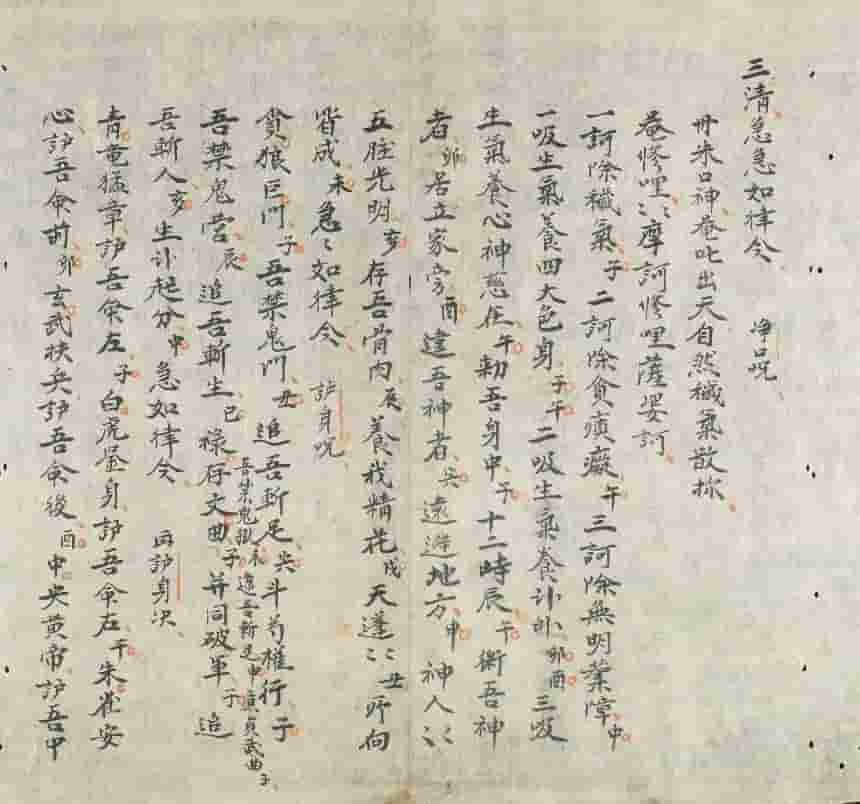 三清急急如律令　净口呪
丹朱口神菴叱出天自然穢氣散除
菴修哩〻摩訶修哩薩婆訶
一訶除穢氣子二訶除貪瞋癡午三訶除無明業障申
一吸生氣養四大色身子午二吸生氣養卟卟卯酉三吸
生氣養心神慈住午勑吾身中子十二時辰午衛吾神
者卯居立家旁酉違吾神者癸遠避地方申神人〻
五脏光明亥存吾骨肉辰養我精花戌天蓬〻丑所向
皆成未急〻如律令　護身呪
貪狼巨门子吾禁鬼门丑追吾斬足癸斗芍權行子
吾禁鬼营辰追吾斬生巳禄存文曲子并同破軍子追
吾禁鬼獄未追吾斬足申廉貞武曲子
吾斬人亥生卟起分申急如律令　再护身決
青竜猛章护吾命左子白虎監身护吾命左午朱雀安
心护吾命前卯玄武扶兵护吾命後酉中央黄帝护吾中